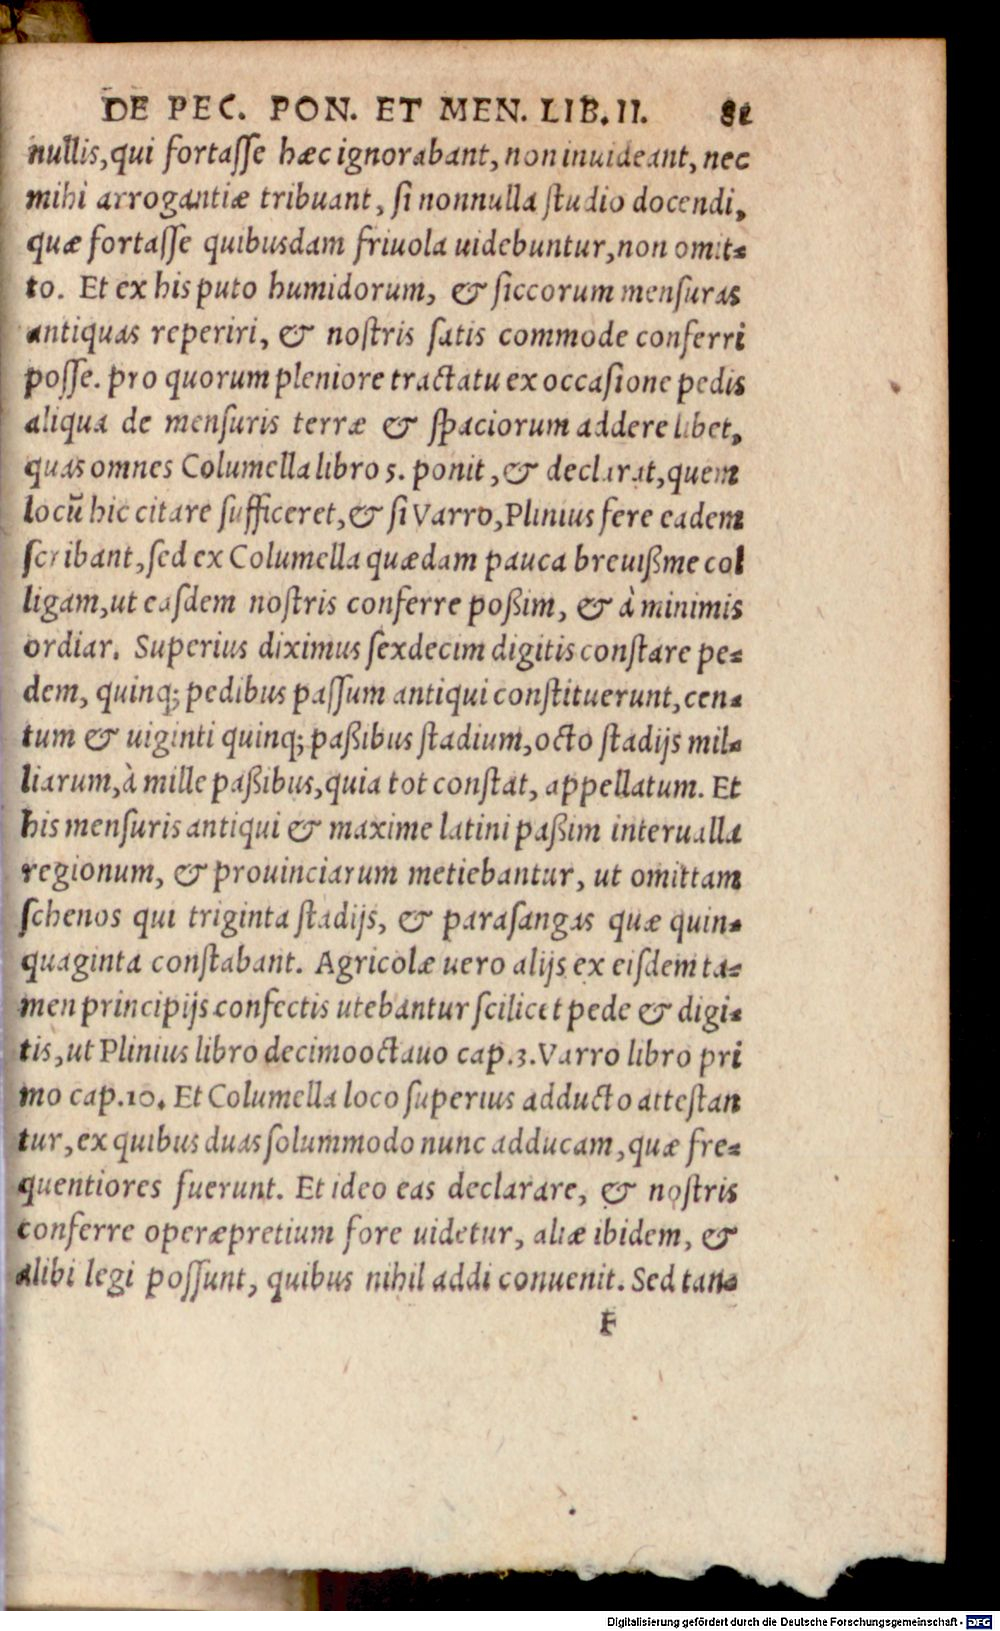 DE PEC. PON. ET MEN. LIB. II. 81
nullis, qui fortaſſe hæc ignorabant, non inuideant, nec
mihi arrogantiæ tribuant, ſi nonnulla ſtudio docendi,
quæ fortaſſe quibusdam friuola uidebuntur, non omit-
to. Et ex his puto humidorum, & ſiccorum menſuras
antiquas reperiri, & noſtris ſatis commode conferri
poſſe. pro quorum pleniore tractatu ex occaſione pedis
aliqua de menſuris terræ & ſpaciorum addere libet,
quas omnes Columella libro 5. ponit, & declarat, quem
locũ hic citare ſufficeret, & ſi Varro, Plinius fere eadem
ſcribant, ſed ex Columella quædam pauca breuißme col
ligam, ut eaſdem noſtris conferre poßim, & à minimis
ordiar. Superius diximus ſexdecim digitis conſtare pe-
dem, quinq; pedibus paſſum antiqui conſtituerunt, cen-
tum & uiginti quinq; paßibus ſtadium, octo ſtadijs mil-
liarum, à mille paßibus, quia tot conſtat, appellatum. Et
his menſuris antiqui & maxime latini paßim interualla
regionum, & prouinciarum metiebantur, ut omittam
ſchenos qui triginta ſtadijs, & paraſangas quæ quin-
quaginta conſtabant. Agricolæ uero alijs ex eiſdem ta-
men principijs confectis utebantur ſcilicet pede & digi-
tis, ut Plinius libro decimooctauo cap.3. Varro libro pri
mo cap.10. Et Columella loco ſuperius adducto atteſtan
tur, ex quibus duas ſolummodo nunc adducam, quæ fre-
quentiores fuerunt. Et ideo eas declarare, & noſtris
conferre operæpretium fore uidetur, aliæ ibidem, &
alibi legi poſſunt, quibus nihil addi conuenit. Sed tan-
F
Digitalisierung gefördert durch die Deutsche Forschungsgemeinschaft - DFG